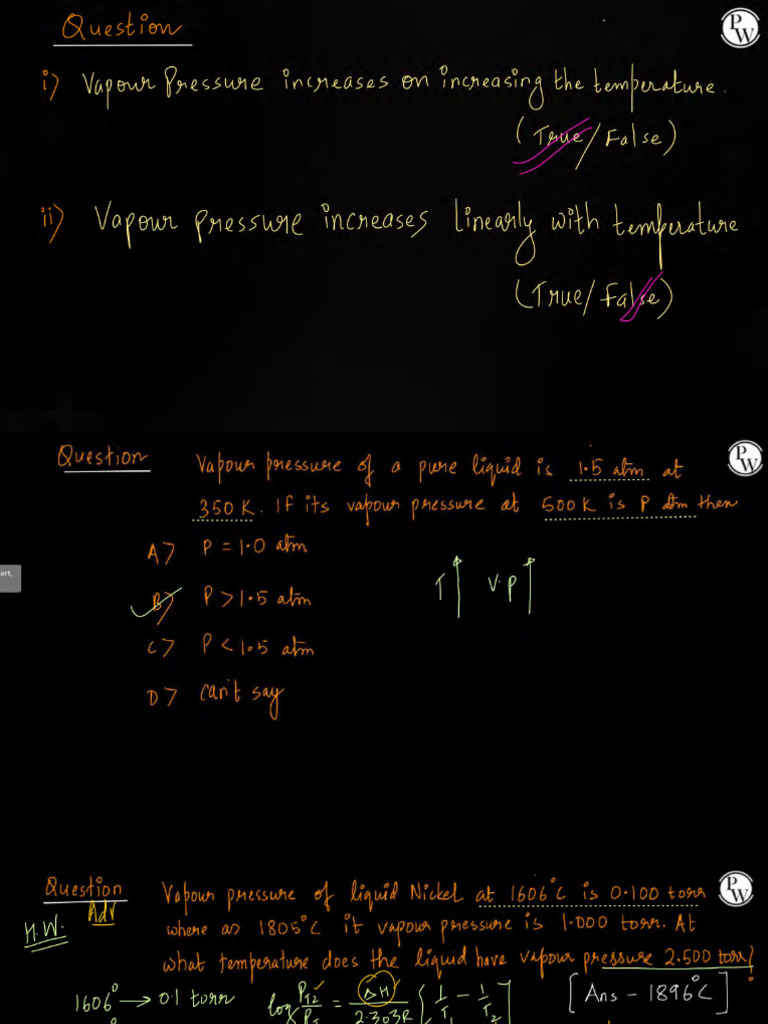 Question
PW
i) Vapour Pressure increases on increasing the temperature.
(True/False)
ii) Vapour pressure increases linearly with temperature
(True/False)
Question
Vapour pressure of a pure liquid is 1.5 atm at
PW
350 K. If its vapour pressure at 500 K is P atm then
A> P = 1.0 atm
T↑ V.P↑
ert,
B> P > 1.5 atm
C> P < 1.5 atm
D> can't say
Question
Vapour pressure of liquid Nickel at 1606°C is 0.100 torr
PW
H.W. Adv
where as 1805°C it vapour pressure is 1.000 torr. At
what temperature does the liquid have vapour pressure 2.500 torr?
1606° → 0.1 torr
log P_T2/P_T = ΔH/2.303R [1/T1 - 1/T2]
[Ans - 1896°C]